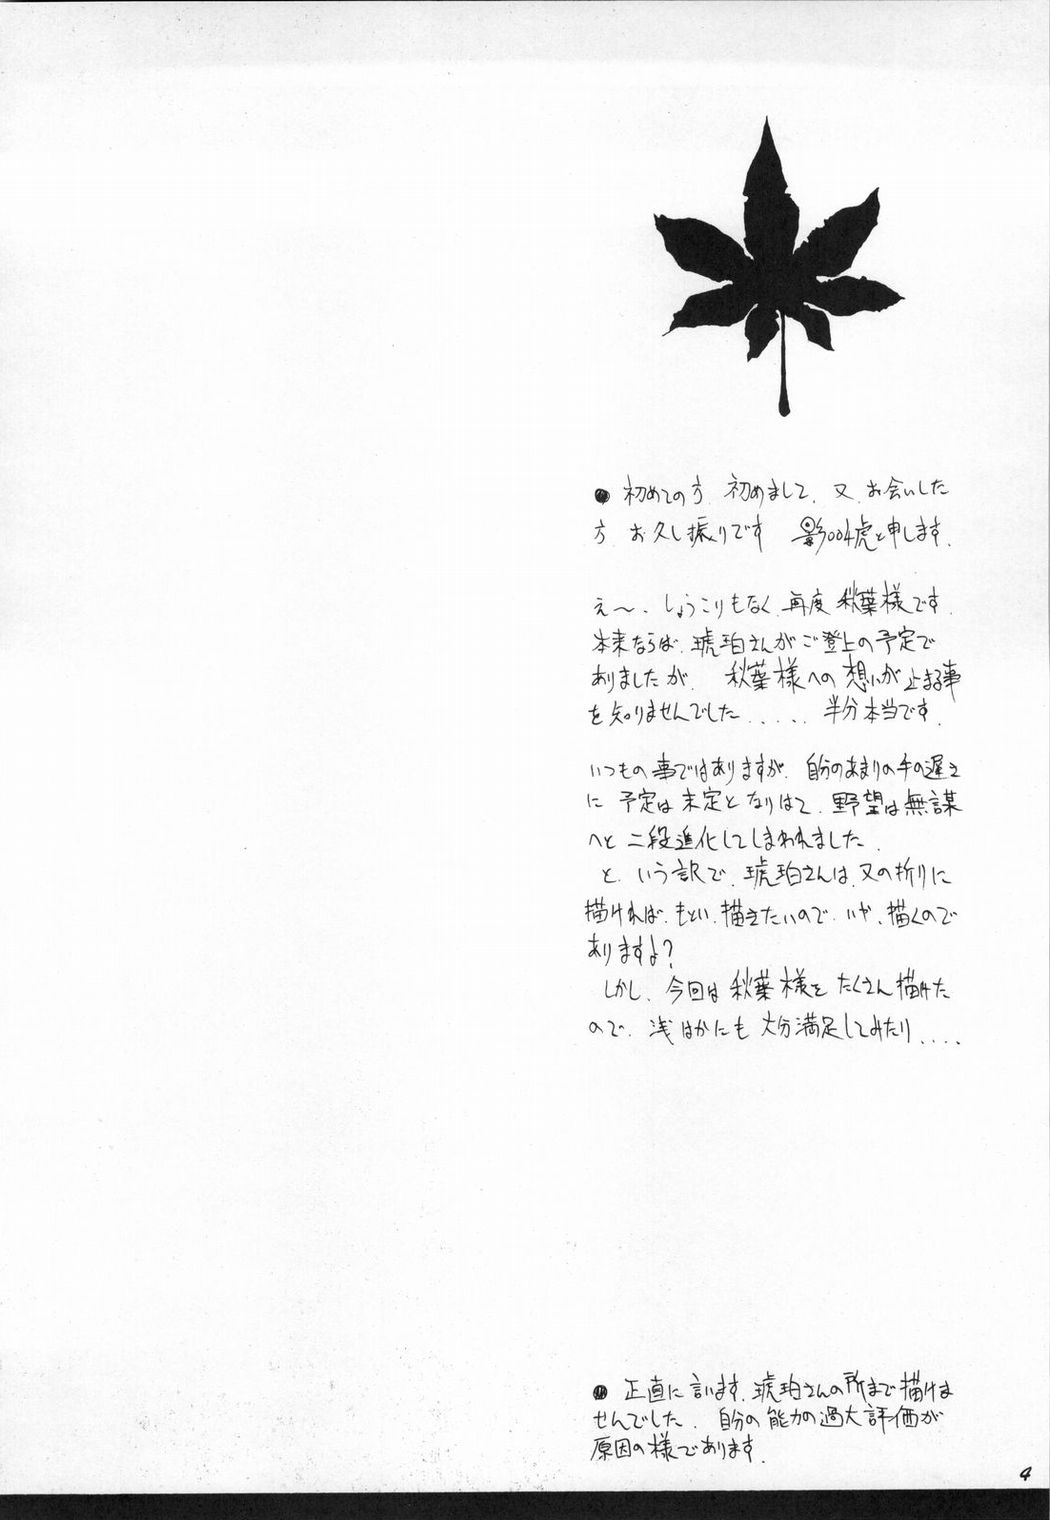 ● 初めての方、初めまして、又、お会いした
方、お久し振りです 影004虎と申します。
え〜、しょうこりもなく、再度 秋葉様です。
本来ならば、琥珀さんがご登上の予定で
ありましたが、秋葉様への想いが止まる事
を知りませんでした..... 半分本当です。
いつもの事ではありますが、自分のあまりの手の遅さ
に予定は未定となりはて、野望は無謀
へと二段進化してしまわれました。
と、いう訳で、琥珀さんは、又の折りに
描ければ、もとい、描きたいので、いや、描くので
ありますよ?
しかし、今回は秋葉様をたくさん描けた
ので、浅はかにも大分満足してみたり....
● 正直に言います、琥珀さんの所まで描けま
せんでした。自分の能力の過大評価が
原因の様であります。
4